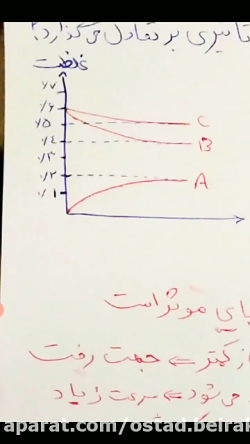 تاثیری بر تعادل می‌گذارد؟
غلظت
۰/۷
۰/۶
۰/۵
۰/۴
۰/۳
۰/۲
۰/۱
C
B
A
موثر است
کمتر ⇐ جهت رفت
می‌شود ⇐ سرعت زیاد
aparat.com/ostad.beirai